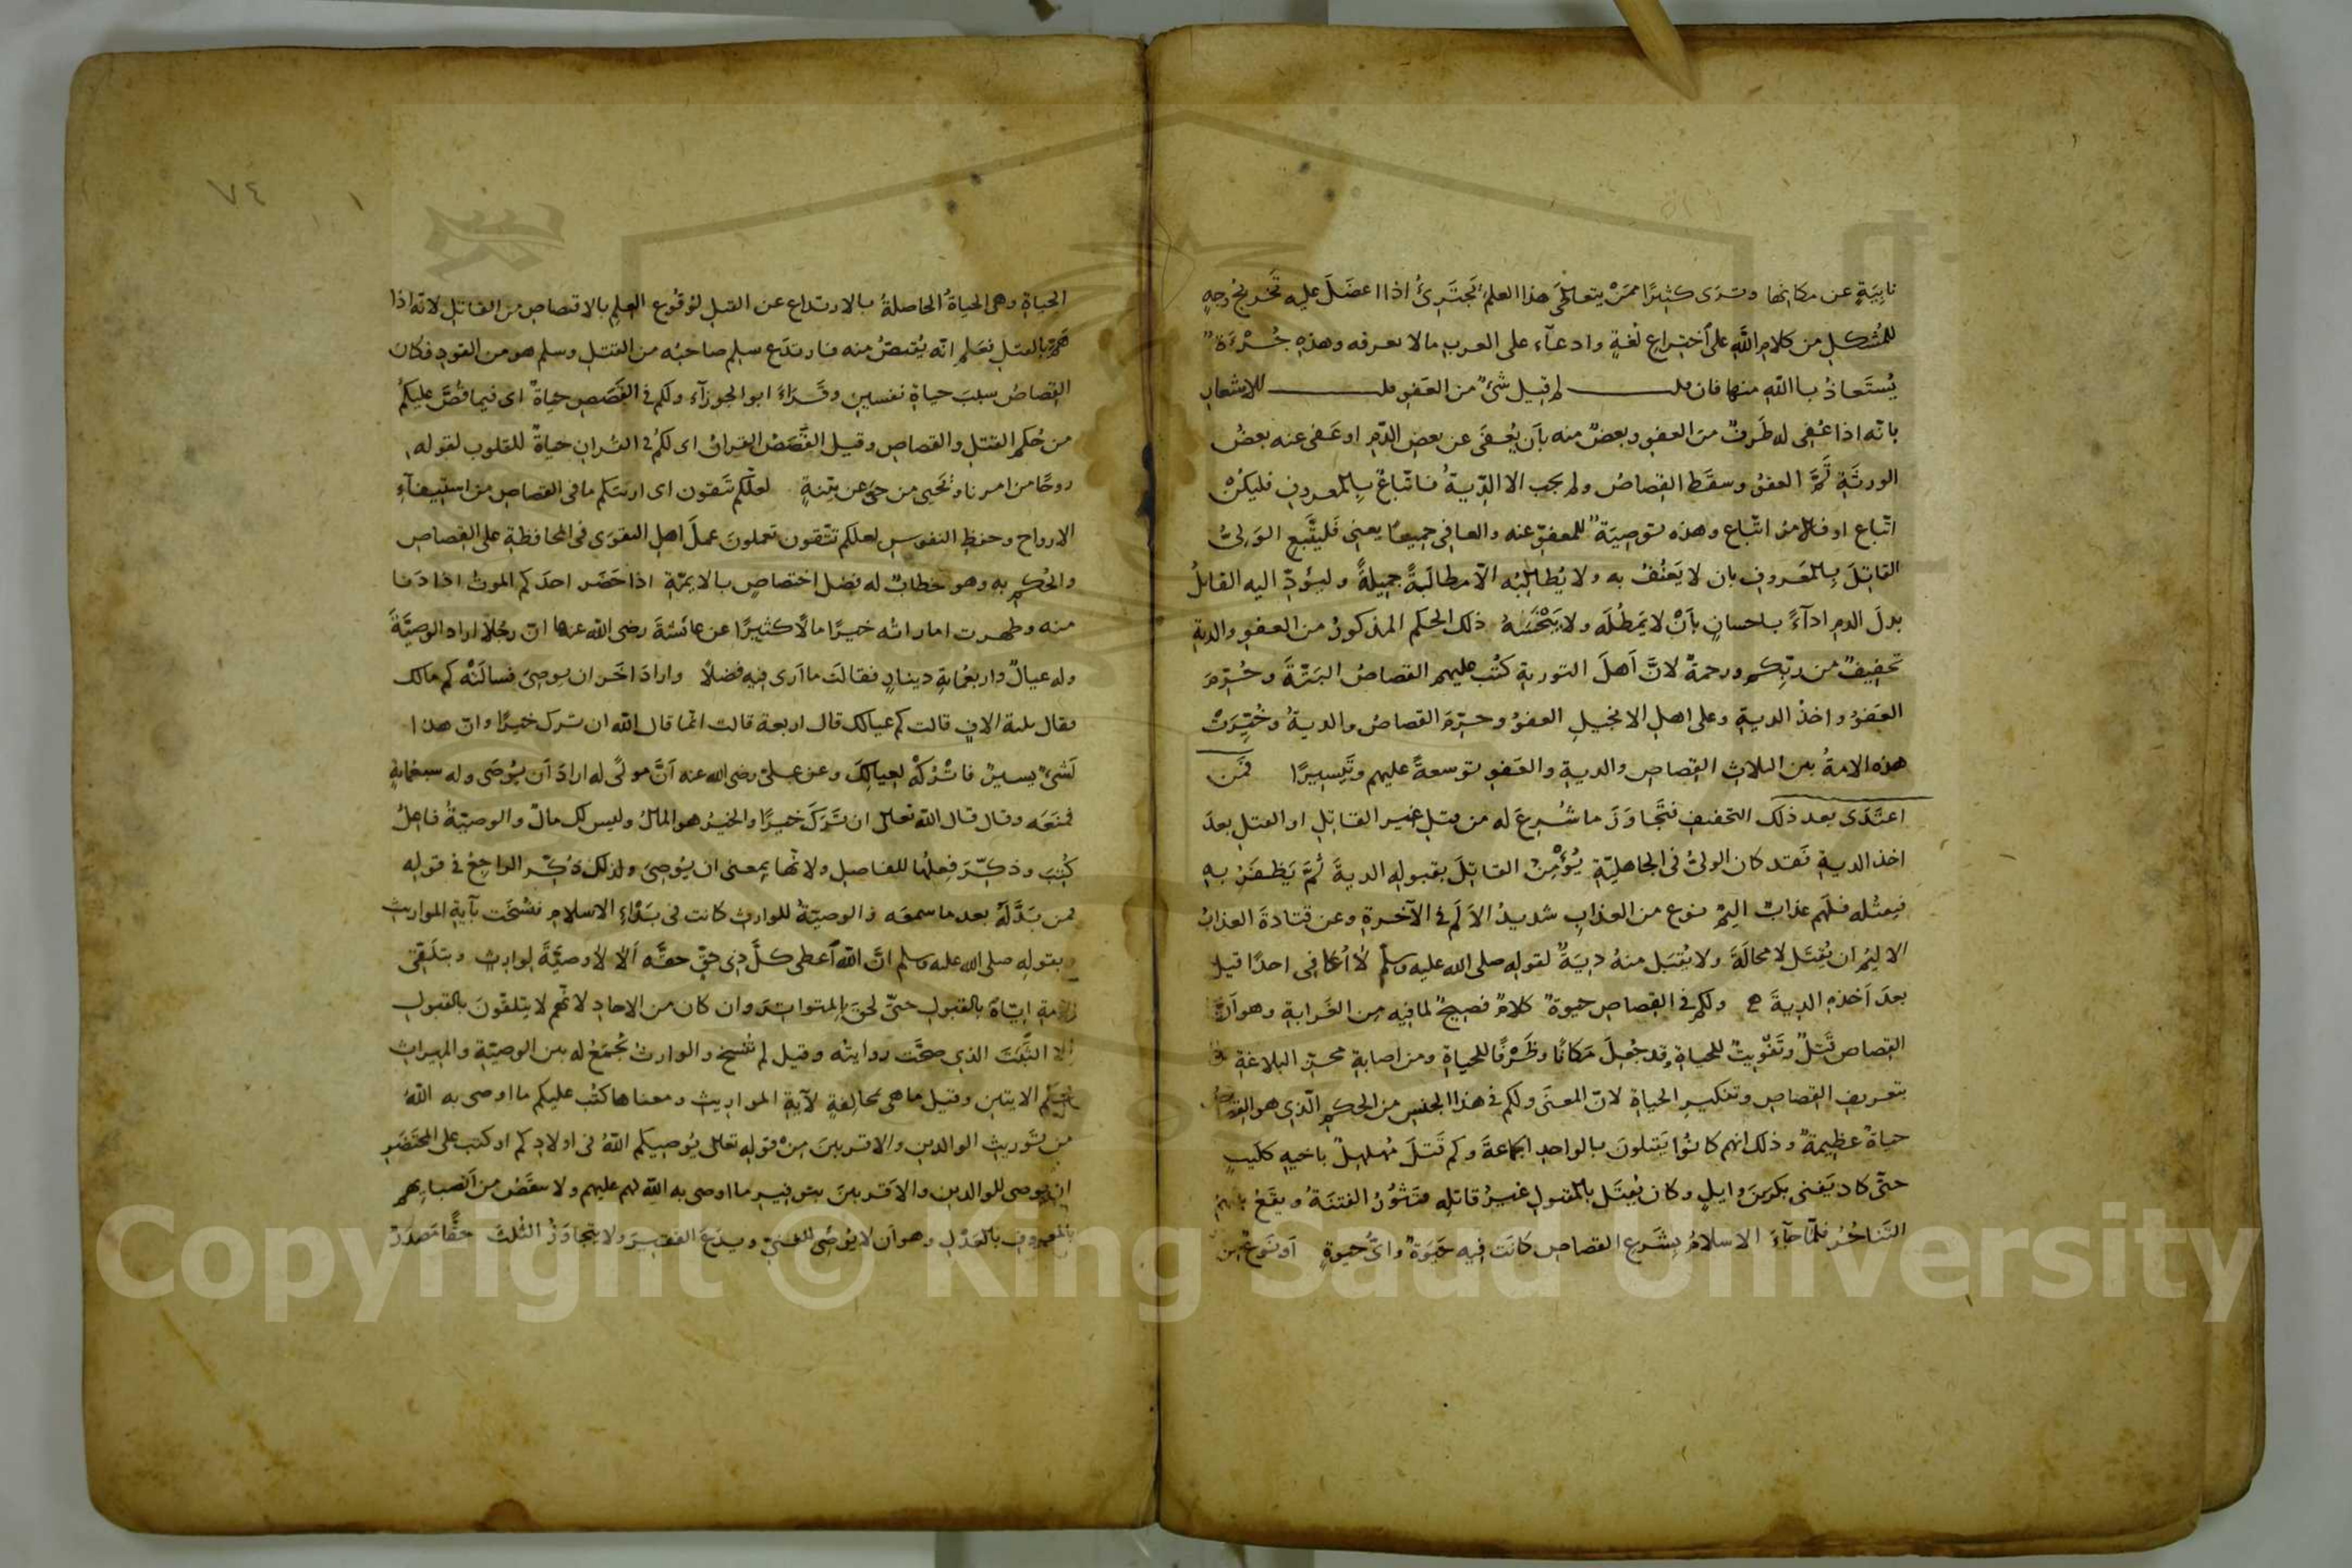 نابِيَةٍ عن مكانها وترى كثيرًا ممن يتعاطى هذا العلم يجترئ اذا اعضل عليه تخريج وجهٍ
للمُشكلِ من كلام اللّه على اختراع لغةٍ وادعآء على العرب مالا يعرفه وهذه جُرْءَةٌ
يُستعاذُ باللّه منها فان قلت لم قيل شىءٌ من العفو قلت للاشعار
بانّه اذا عُفِى له طَرفٌ من العفو وبعضٌ منه بأن يُعفَى عن بعض الدّم او عَفى عنه بعضُ
الورثَةِ تَمَّ العفوُ وسقَط القِصاصُ ولم يجب الا الدِّيةُ فاتّباعٌ بالمعروف فليكُنْ
اتّباع او فالامرُ اتّباع وهذه توصِيَةٌ للمعفوّ عنه والعافى جميعًا يعنى فليتَّبع الوَلِىُّ
القاتِلَ بالمعَروفِ بان لا يَعنُفُ به ولا يُطالِبُه الّا مطالَبةً جميلةً وليُؤدِّ اليه القاتلُ
بدلَ الدمِ ادآءً باحسانٍ بأنْ لا يَمطُلَه ولا يَبْخَسَهُ ذلك الحكم المذكورُ من العفو والديةِ
تخفيفٌ من ربّكم ورحمةٌ لانَّ اَهلَ التوريةِ كُتب عليهم القصاصُ البتّةَ وحُرّمَ
العَفوُ واخذُ الديةِ وعلى اهلِ الانجيلِ العفوُ وحرّمَ القصاصُ والديةُ وخُيّرتْ
هذه الامةُ بين الثلاثِ القِصاصِ والديةِ والعَفو توسعةً عليهم وتَيسيرًا فمَن
اعتَدَى بعد ذلك التخفيف فتَجاوَزَ ما شُرِعَ له من قتلِ غير القاتِلِ او القتلِ بعدَ
اخذ الديةِ فَقد كان الولىُّ فى الجاهليّةِ يُؤمِنُ القاتِلَ بقبوله الديةَ ثُمَّ يَظفَرُ بهِ
فيقتُله فلهم عذابٌ اليمٌ نوع من العذابِ شديدُ الاَلَمِ فى الآخرةِ وعن قتادةَ العذابُ
الاليمُ ان يُقتَل لا محالَةَ ولا يُقبَل منهُ ديةٌ لقوله صلى الله عليه وسلّم لا اُعافِى احدًا قتل
بعدَ اَخذِه الديةَ ولكم فى القِصاص حيوةٌ كلامٌ فصيحٌ لما فيه من الغَرابةِ وهو اَنَّ
القِصاصَ قَتلٌ وتَفويتٌ للحياةِ وقد جُعِلَ مَكانًا وظَرْفًا للحياةِ ومن اصابةِ محزّ البلاغةِ
بتعريفِ القِصاص وتنكيرِ الحياةِ لانّ المعنَى ولكم فى هذا الجنسِ من الحكمِ الّذى هو القِصاص
حياةٌ عظيمةٌ وذلك انهم كانوُا يَقتلونَ بالواحدِ الجماعةَ وكم قَتلَ مُهلهِلٌ باخيهِ كلَيبٍ
حتّى كاد يَفنى بكرُ بنُ وايلٍ وكان يُقتَل بالمقتولِ غيرُ قاتلِه فتَثُورُ الفتنَةُ ويقَعُ بينهم
التَناحُرُ فلمّا جآءَ الاسلامُ بِشَرعِ القصاصِ كانَت فيه حَيوةٌ واىُّ حيوةٍ اَو نَوعٌ من
٧٤
الحياةِ وهى الحياةُ الحاصلةُ بالارتداع عن القتلِ لوُقُوعِ العلمِ بالاقتصاصِ من القاتلِ لانّه اذا
همَّ بالقتلِ فعَلم انّه يُقتصُّ منه فارتدَع سلِم صاحبُه من القتلِ وسلم هو من القودِ فكان
القِصاصُ سببَ حياةِ نفسينِ وقَرَاءَ ابو الجوزآء ولكم فى القَصَصِ حياةٌ اى فيما قُصَّ عليكمُ
من حُكمِ القتلِ والقصاصِ وقيل القَصَصُ القرانُ اى لكم فى القران حياةٌ للقلوب لقوله
روحًا من امرنا ونُحيى من حىَّ عن بيّنةٍ لعلّكم تتّقون اى اريتكم ما فى القصاص من استبقآءِ
الارواح وحفظِ النفوسِ لعلّكم تتّقون تعملونَ عملَ اهلِ التقوى فى المحافظةِ على القِصاصِ
والحُكمِ به وهو خطابٌ له فضلُ اختصاصٍ بالايمّةِ اذا حَضَر احدَكم الموتُ اذا دَنا
منه وظهرت اماراتُه خيرًا مالًا كثيرًا عن عائشةَ رضى الله عنها انّ رجُلًا اراد الوصيّةَ
وله عيالٌ واربعُمايةِ دينارٍ فقالت ما اَرى فيه فضلًا واراد اخَر ان يوصِىَ فسالَتْه كم مالك
فقال ثلثة الافٍ قالت كم عيالك قال اربعة قالت انّما قال اللّه ان ترك خيرًا وانّ هذا
لَشىءٌ يسيرٌ فاترُكْهُ لعِيالِكَ وعن علىّ رضى الله عنه اَنَّ مولًى له ارادَ اَن يُوصَى وله سبعُمايةٍ
فمنَعَه وقال قال اللّه تعالى ان تَرَكَ خيرًا والخيرُ هو المالُ وليس لك مالٌ والوصيّةُ فاعِلُ
كُتِبَ وذكِّرَ فِعلُها للفاصِلِ ولانّها بمعنى ان يُوصِىَ ولذلك ذُكِّرَ الراجِعُ فى قوله
فمن بَدَّلَهُ بعد ما سمعَه والوصيّةُ للوارث كانت فى بَدْءِ الاسلامِ فنُسخَت بآيةِ المواريث
وبقوله صلى الله عليه وسلم انَّ اللّهَ اَعطى كلَّ ذى حقٍّ حقَّه اَلا لا وصيَّةَ لوارثٍ وبتلَقّى
الامةِ ايّاهُ بالقبولِ حتّى لحِقَ بالمتواتِرِ وان كان من الاحادِ لانّهم لا يتلقّونَ بالقبولِ
الّا الثَّبَتَ الذى صحّت روايتُه وقيل لم تُنسخ والوارثُ يُجمَعُ له بين الوصيّةِ والميراثِ
بحُكمِ الايتينِ وقيل ما هى بمخالِفةٍ لآيةِ المواريثِ ومعناها كُتب عليكم ما اوصى به اللّهُ
من تَوريثِ الوالدينِ والاقربينَ مِن قولِه تعالى يُوصِيكم اللّهُ فى اولادِكم او كتب على المحتَضَرِ
ان يوصى للوالدينِ والاَقربينَ بتوفيرِ ما اوصى به اللّه لهم عليهم ولا ينقَصُ من اَنصبايِهم
بالمعروفِ بالعَدْلِ وهو اَن لا يُوصَى للغنىّ ويدَعَ الفقيرَ ولا يتجاوَزُ الثُلثَ حقًّا مَصدَرٌ
Copyright © King Saud University